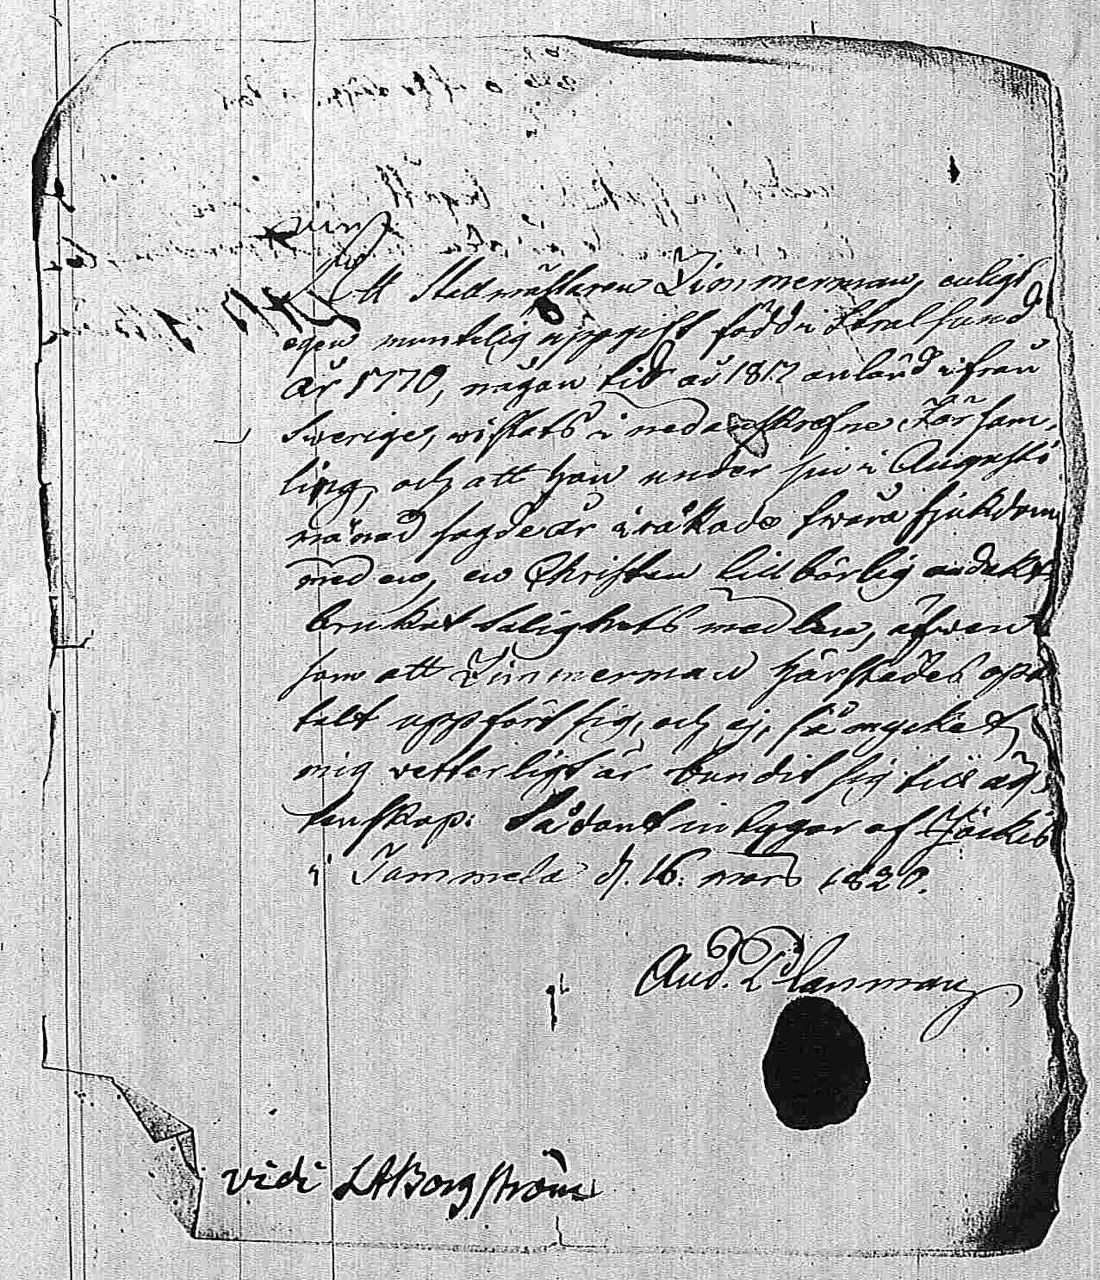 Att Stallmästaren Zimmerman, enligt
egen muntelig uppgift född i Stralsund
år 1770, någon tid år 1817 anländ ifrån
Sverige, wistats i nedanskrefne Försam-
ling, och att han under sin i Augusti
månad sagde år iråkade swåra sjukdom
med en, en Christen tillbörlig andakt
brukat salighets medlen, äfwen
som att Zimmerman härstädes opå-
talt uppfört sig, och ej, så mycket
mig vetterligt är bundit sig till äg-
tenskap; Sådant intygar af Jockis
i Tammela d. 16. mars 1820.
And. Planman
vidi LABorgström